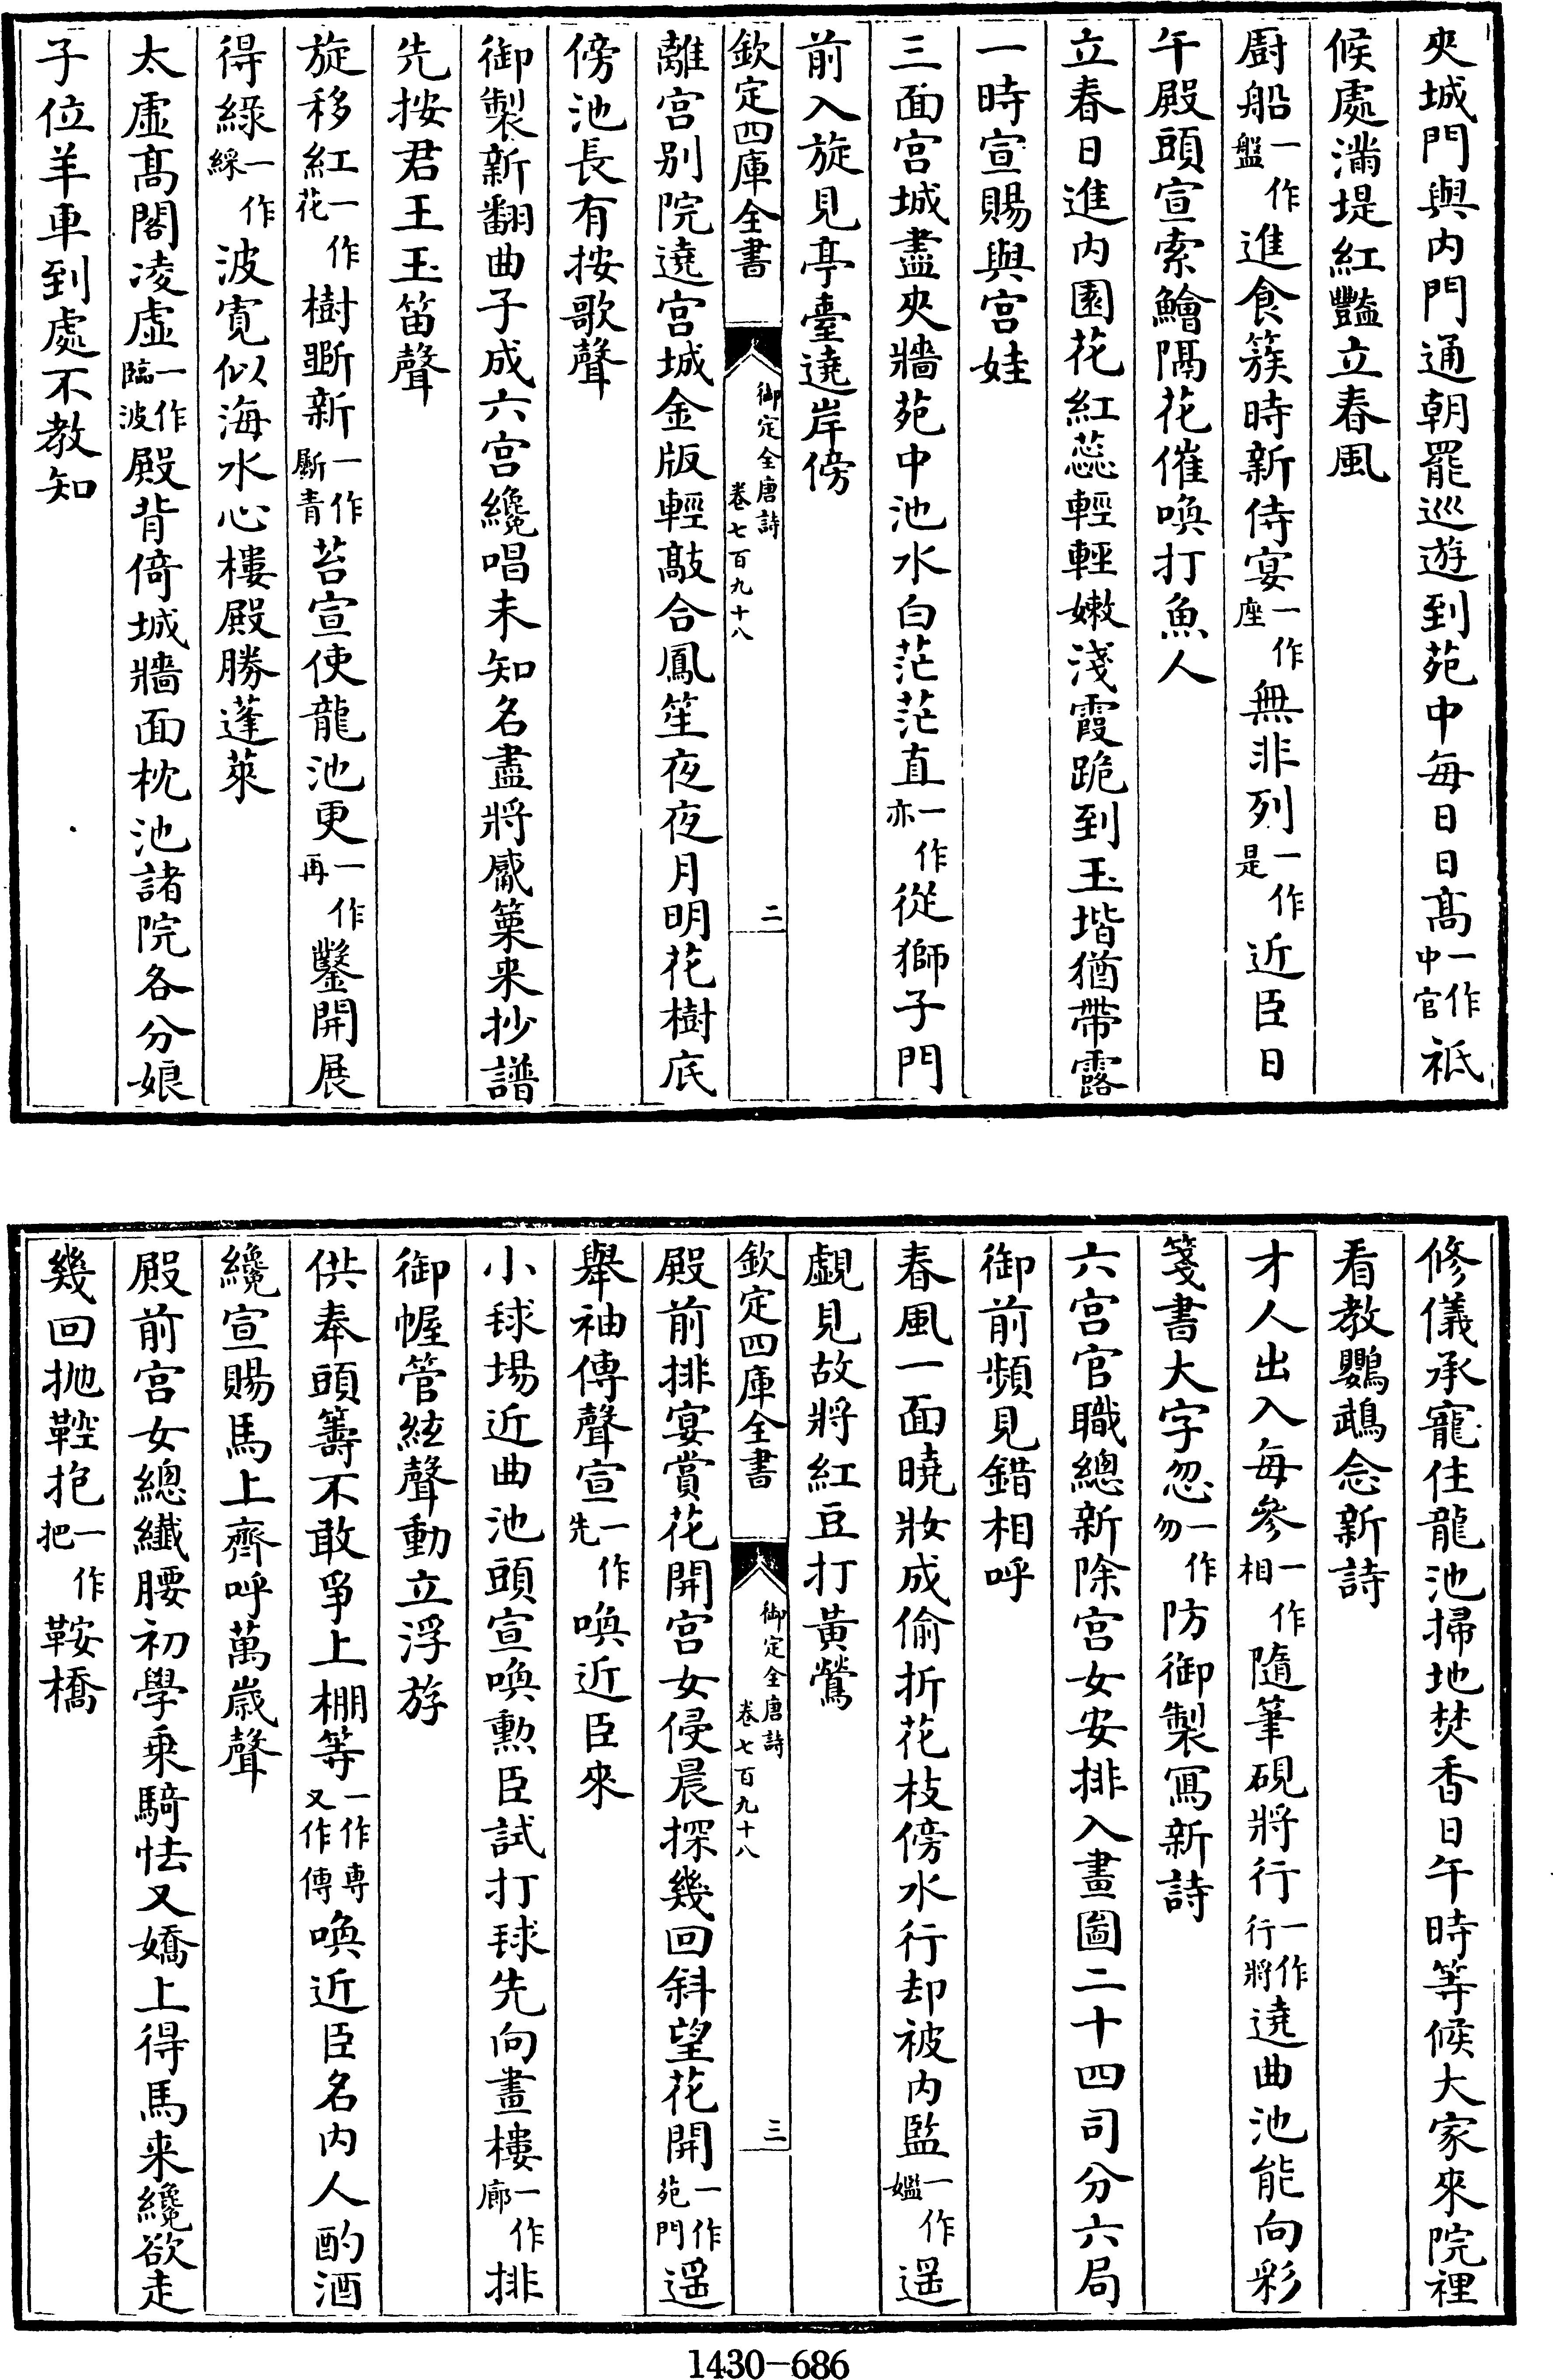 夾城門與内門通朝罷巡遊到苑中每日日高一作中官祗
候處滿堤紅豔立春風
廚船一作盤進食簇時新侍宴一作座無非列一作是近臣日
午殿頭宣索鱠隔花催喚打魚人
立春日進内園花紅蕊輕輕嫩淺霞跪到玉堦猶帶露
一時宣賜與宫娃
三面宫城盡夾牆苑中池水白茫茫直一作亦從獅子門
前入旋見亭臺遶岸傍
欽定四庫全書 御定全唐詩卷七百九十八 二
離宫别院遶宫城金版輕敲合鳳笙夜夜月明花樹底
傍池長有按歌聲
御製新翻曲子成六宫纔唱未知名盡將觱篥来抄譜
先按君王玉笛聲
旋移紅一作花樹斵新一作斸青苔宣使龍池更一作再鑿開展
得綠一作綵波寛似海水心樓殿勝蓬萊
太虛髙閣凌虛一作臨波殿背倚城牆面枕池諸院各分娘
子位羊車到處不教知
修儀承寵住龍池掃地焚香日午時等候大家來院裡
看教鸚鵡念新詩
才人出入每參一作相隨筆硯將行一作行將遶曲池能向彩
箋書大字忽一作勿防御製寫新詩
六宫官職總新除宫女安排入畫圖二十四司分六局
御前頻見錯相呼
春風一面曉妝成偷折花枝傍水行却被内監一作㜮遥
覷見故將紅豆打黄鶯
欽定四庫全書 御定全唐詩卷七百九十八 三
殿前排宴賞花開宫女侵晨探幾回斜望花開一作苑門遥
舉袖傳聲宣一作先喚近臣來
小毬場近曲池頭宣喚勲臣試打毬先向畫樓一作廊排
御幄管絃聲動立浮游
供奉頭籌不敢爭上棚等一作專又作傳喚近臣名内人酌酒
纔宣賜馬上齊呼萬歲聲
殿前宫女總纖腰初學乗騎怯又嬌上得馬来纔欲走
幾回抛鞚抱一作把鞍橋
1430-686